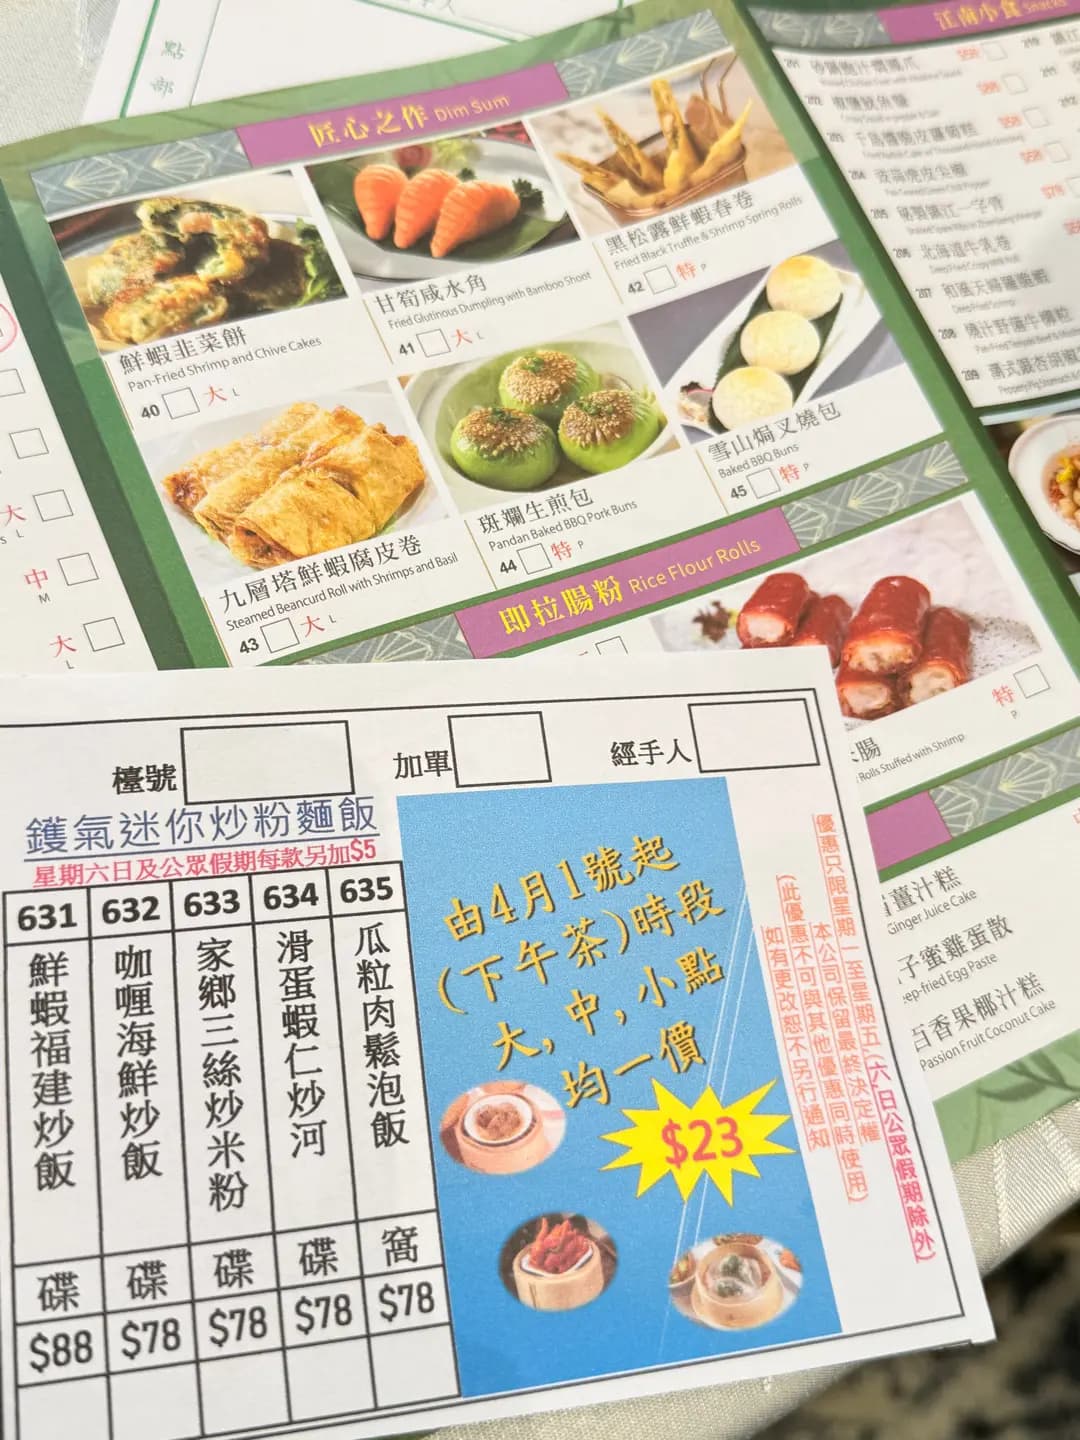 點
部
匠心之作 Dim Sum
鮮蝦韭菜餅
Pan-Fried Shrimp and Chive Cakes
40 大 L
甘筍咸水角
Fried Glutinous Dumpling with Bamboo Shoot
41 大 L
黑松露鮮蝦春卷
Fried Black Truffle & Shrimp Spring Rolls
42 特 P
九層塔鮮蝦腐皮卷
Steamed Beancurd Roll with Shrimps and Basil
43 大 L
斑斕生煎包
Pandan Baked BBQ Pork Buns
44 特 P
雪山焗叉燒包
Baked BBQ Buns
45 特 P
即拉腸粉 Rice Flour Rolls
特
P
腸
Rolls Stuffed with Shrimp
薑汁糕
Ginger Juice Cake
子蜜雞蛋散
eep-fried Egg Paste
百香果椰汁糕
Passion Fruit Coconut Cake
大
S L
中
M
大
L
江南小食 Snacks
201
202
203
204
205
206 北海道牛乳卷
207
208
209
檯號
加單
經手人
鑊氣迷你炒粉麵飯
星期六日及公眾假期每款另加$5
631 632 633 634 635
鮮蝦福建炒飯
咖喱海鮮炒飯
家鄉三絲炒米粉
滑蛋蝦仁炒河
瓜粒肉鬆泡飯
碟 碟 碟 碟 窩
$88 $78 $78 $78 $78
由4月1號起
(下午茶)時段
大, 中, 小點
均一價
$23
優惠只限星期一至星期五(六日公眾假期除外)
本公司保留最終決定權
(此優惠不可與其他優惠同時使用)
如有更改恕不另行通知